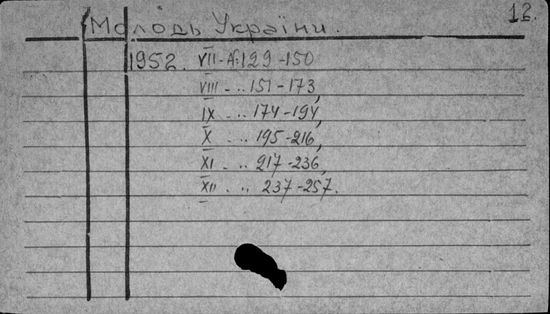 12.
Молодь України.
1952. VII - №: 129 - 150
VIII - .. 151 - 173,
IX - .. 174 - 194,
X - .. 195 - 216,
XI - .. 217 - 236,
XII - .. 237 - 257.